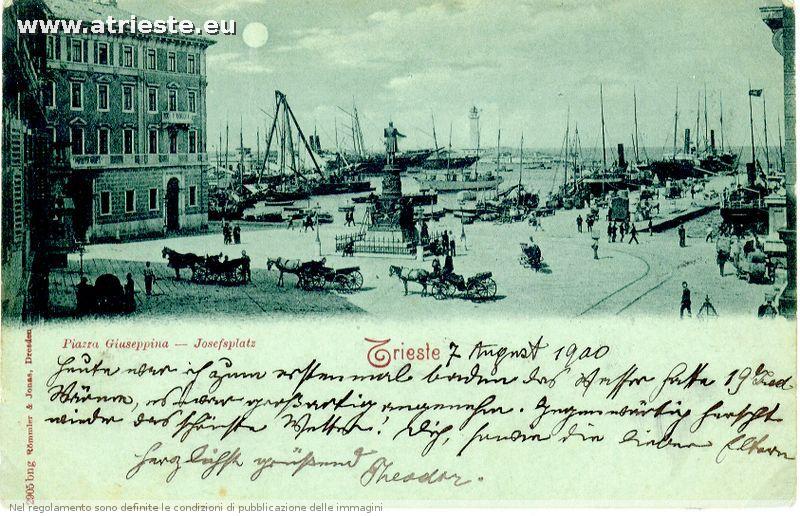 www.atrieste.eu
Piazza Giuseppina — Josefsplatz
Trieste 7 August 1900
Heute war ich zum erstenmal baden das Wasser hatte 19 Grad
Wärme, es war großartig angenehm. Gegenwärtig herrscht
wieder das schönste Wetter! Dich, sowie die lieben Eltern
herzlichst grüßend Theodor.
2905 bng Römmler & Jonas, Dresden
Nel regolamento sono definite le condizioni di pubblicazione delle immagini